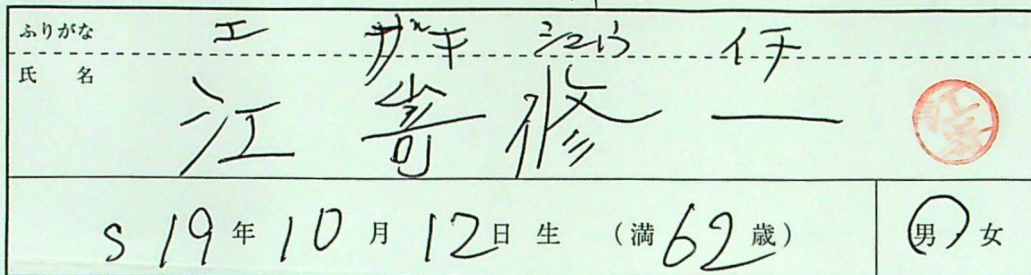 ふりがな エ ザキ シュウ イチ
氏名 江嵜修一
S19年10月12日生 (満62歳) 男女